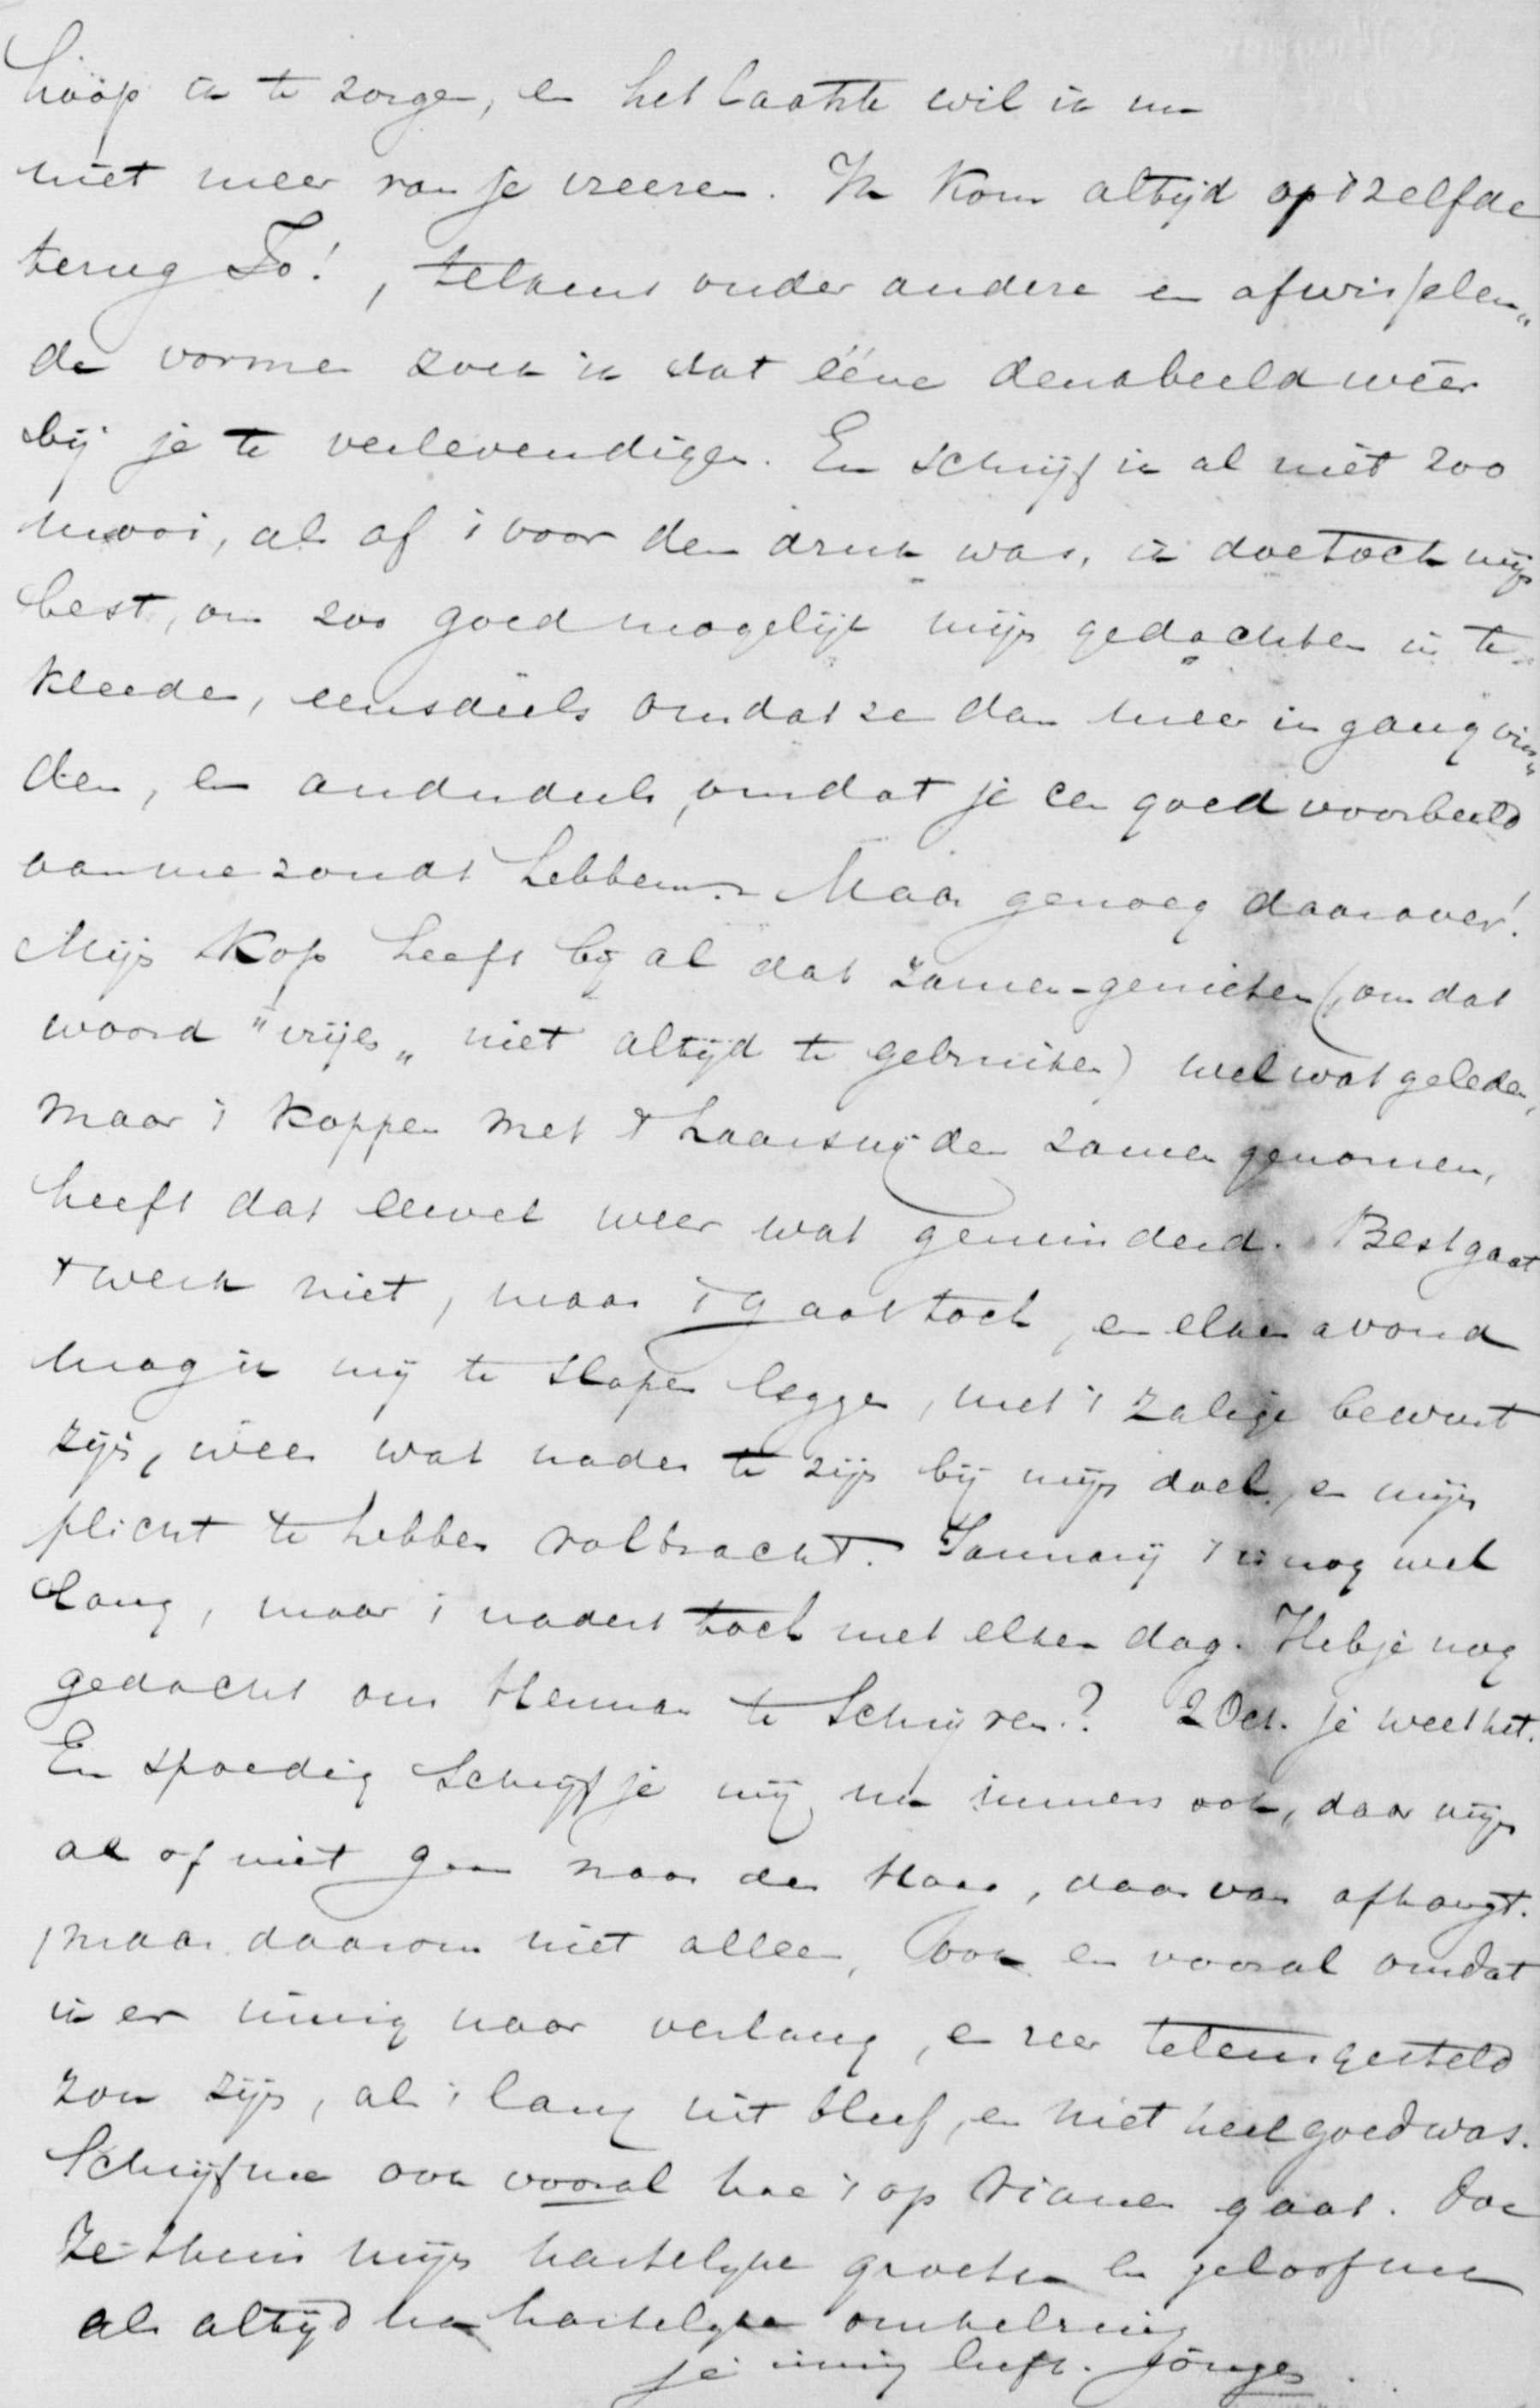 hoop ik te zorgen, en het laatste wil ik nu
niet meer van je vreezen. Ik kom altijd op 't zelfde
terug To!, telkens onder andere en afwisselen„
de vormen zoek ik dat ééne denkbeeld weer
bij je te verlevendigen. En schrijf ik al niet zoo
mooi, als of 't voor den druk was, ik doe toch mijn
best, om zoo goed mogelijk mijn gedachten in te
kleeden, eensdeels omdat ze dan meer ingang vin„
den, en anderdeels, omdat je een goed voorbeeld
aan me zoudt hebben. Maar genoeg daarover!
Mijn kop heeft bij al dat zamen-genieten (, om dat
woord "vrijen„ niet altijd te gebruiken) wel wat geleden,
maar 't koppen met 't haarsnijden zamen genomen,
heeft dat eevel weer wat geminderd. Best gaat
't werk niet, maar 't gaat toch, en elken avond
mag ik mij te slapen leggen, met 't zalige bewust
zijn, weer wat nader te zijn bij mijn doel, en mijn
plicht te hebben volbracht. Januarij is nog wel
lang, maar 't nadert toch met elken dag. Heb je nog
gedacht om Herman te schrijven? 2 Oct. je weet het.
En spoedig schrijf je mij nu immers ook, daar mijn
al of niet gaan naar den Haag, daarvan afhangt.
maar daarom niet alleen, ook en vooral omdat
ik er innig naar verlang, en zeer teleurgesteld
zou zijn, als 't lang uit bleef, en niet heel goed was.
Schrijf me ook vooral hoe 't op Vianen gaat. Doe
ze thuis mijn hartelijke groeten en geloof me
als altijd na hartelijke omhelzing
je innig liefh. Jongen.